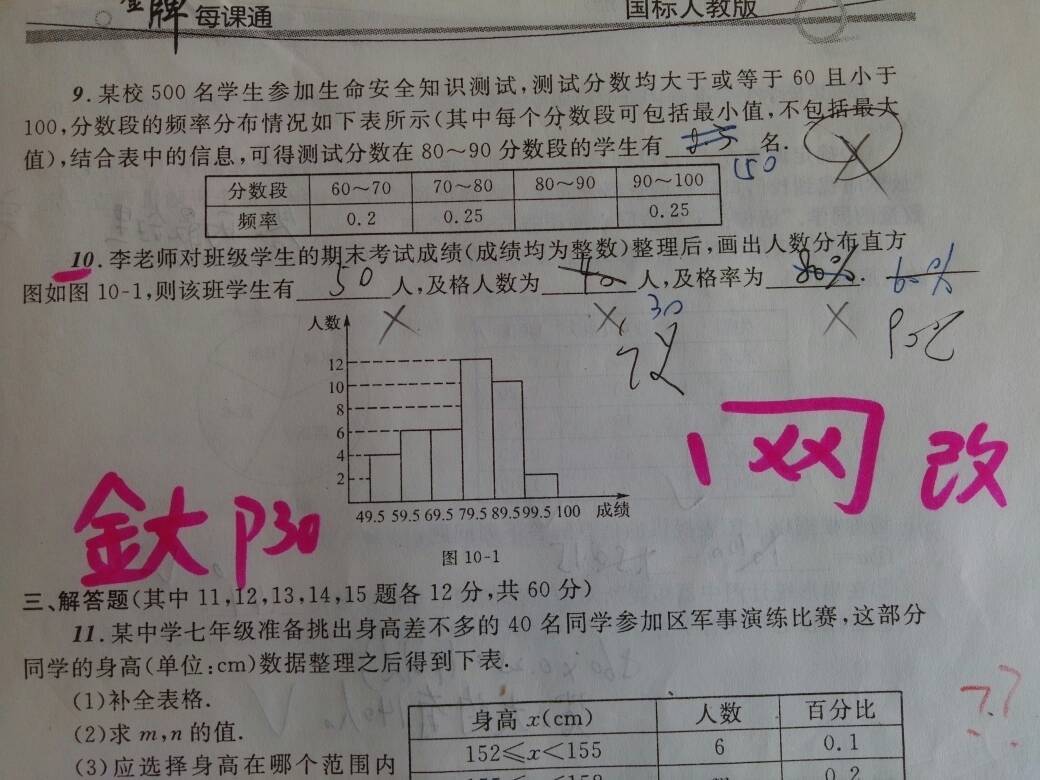 金牌 每课通
国标人教版
9. 某校 500 名学生参加生命安全知识测试,测试分数均大于或等于 60 且小于
100,分数段的频率分布情况如下表所示(其中每个分数段可包括最小值,不包括最大
值),结合表中的信息,可得测试分数在 80～90 分数段的学生有 名.
150
分数段 60～70 70～80 80～90 90～100
频率 0.2 0.25 0.25
10. 李老师对班级学生的期末考试成绩(成绩均为整数)整理后,画出人数分布直方
图如图 10-1,则该班学生有 50 人,及格人数为 40 人,及格率为 80%. 60%
30
人数
12
10
8
6
4
2
49.5 59.5 69.5 79.5 89.5 99.5 100 成绩
图 10-1
改
金大 P30
三、解答题(其中 11,12,13,14,15 题各 12 分,共 60 分)
11. 某中学七年级准备挑出身高差不多的 40 名同学参加区军事演练比赛,这部分
同学的身高(单位:cm)数据整理之后得到下表.
(1)补全表格.
(2)求 m,n 的值.
(3)应选择身高在哪个范围内
身高 x(cm) 人数 百分比
152≤x<155 6 0.1
0.2
??